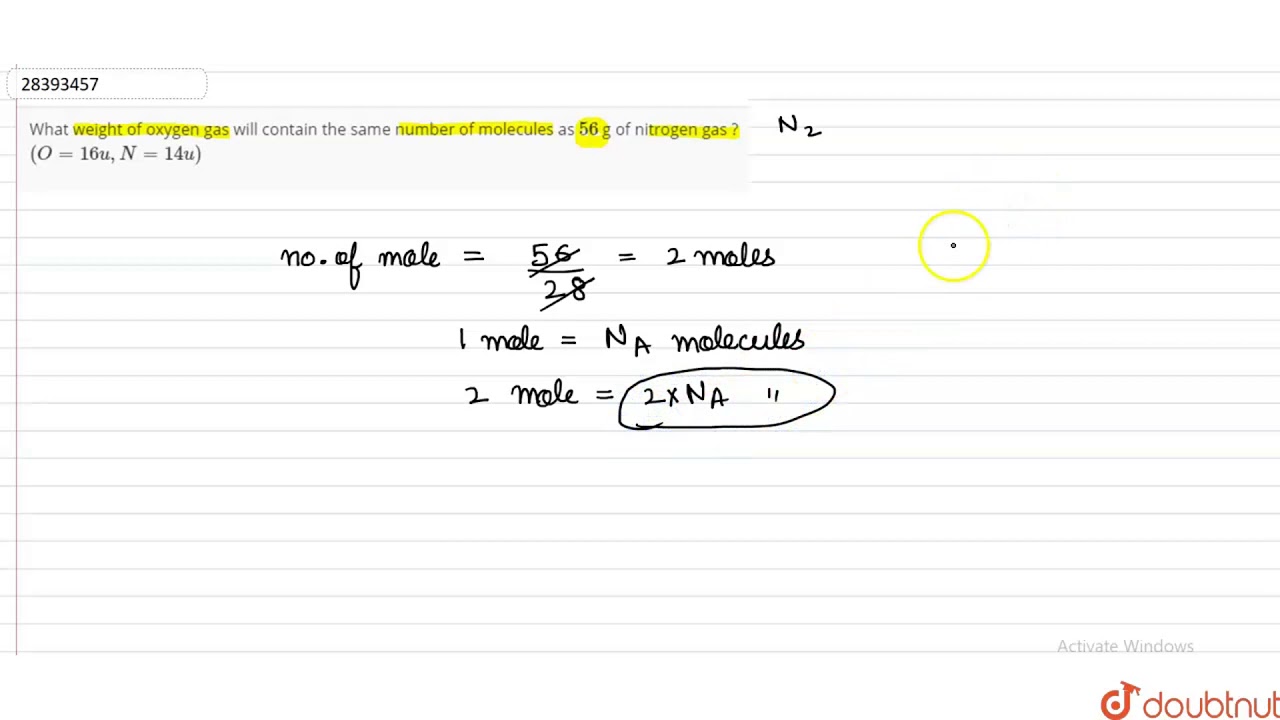 28393457
What weight of oxygen gas will contain the same number of molecules as 56 g of nitrogen gas ?
(O = 16u, N = 14u)
N2
no. of mole = 56/28 = 2 moles
1 mole = NA molecules
2 mole = 2xNA "
Activate Windows
doubtnut